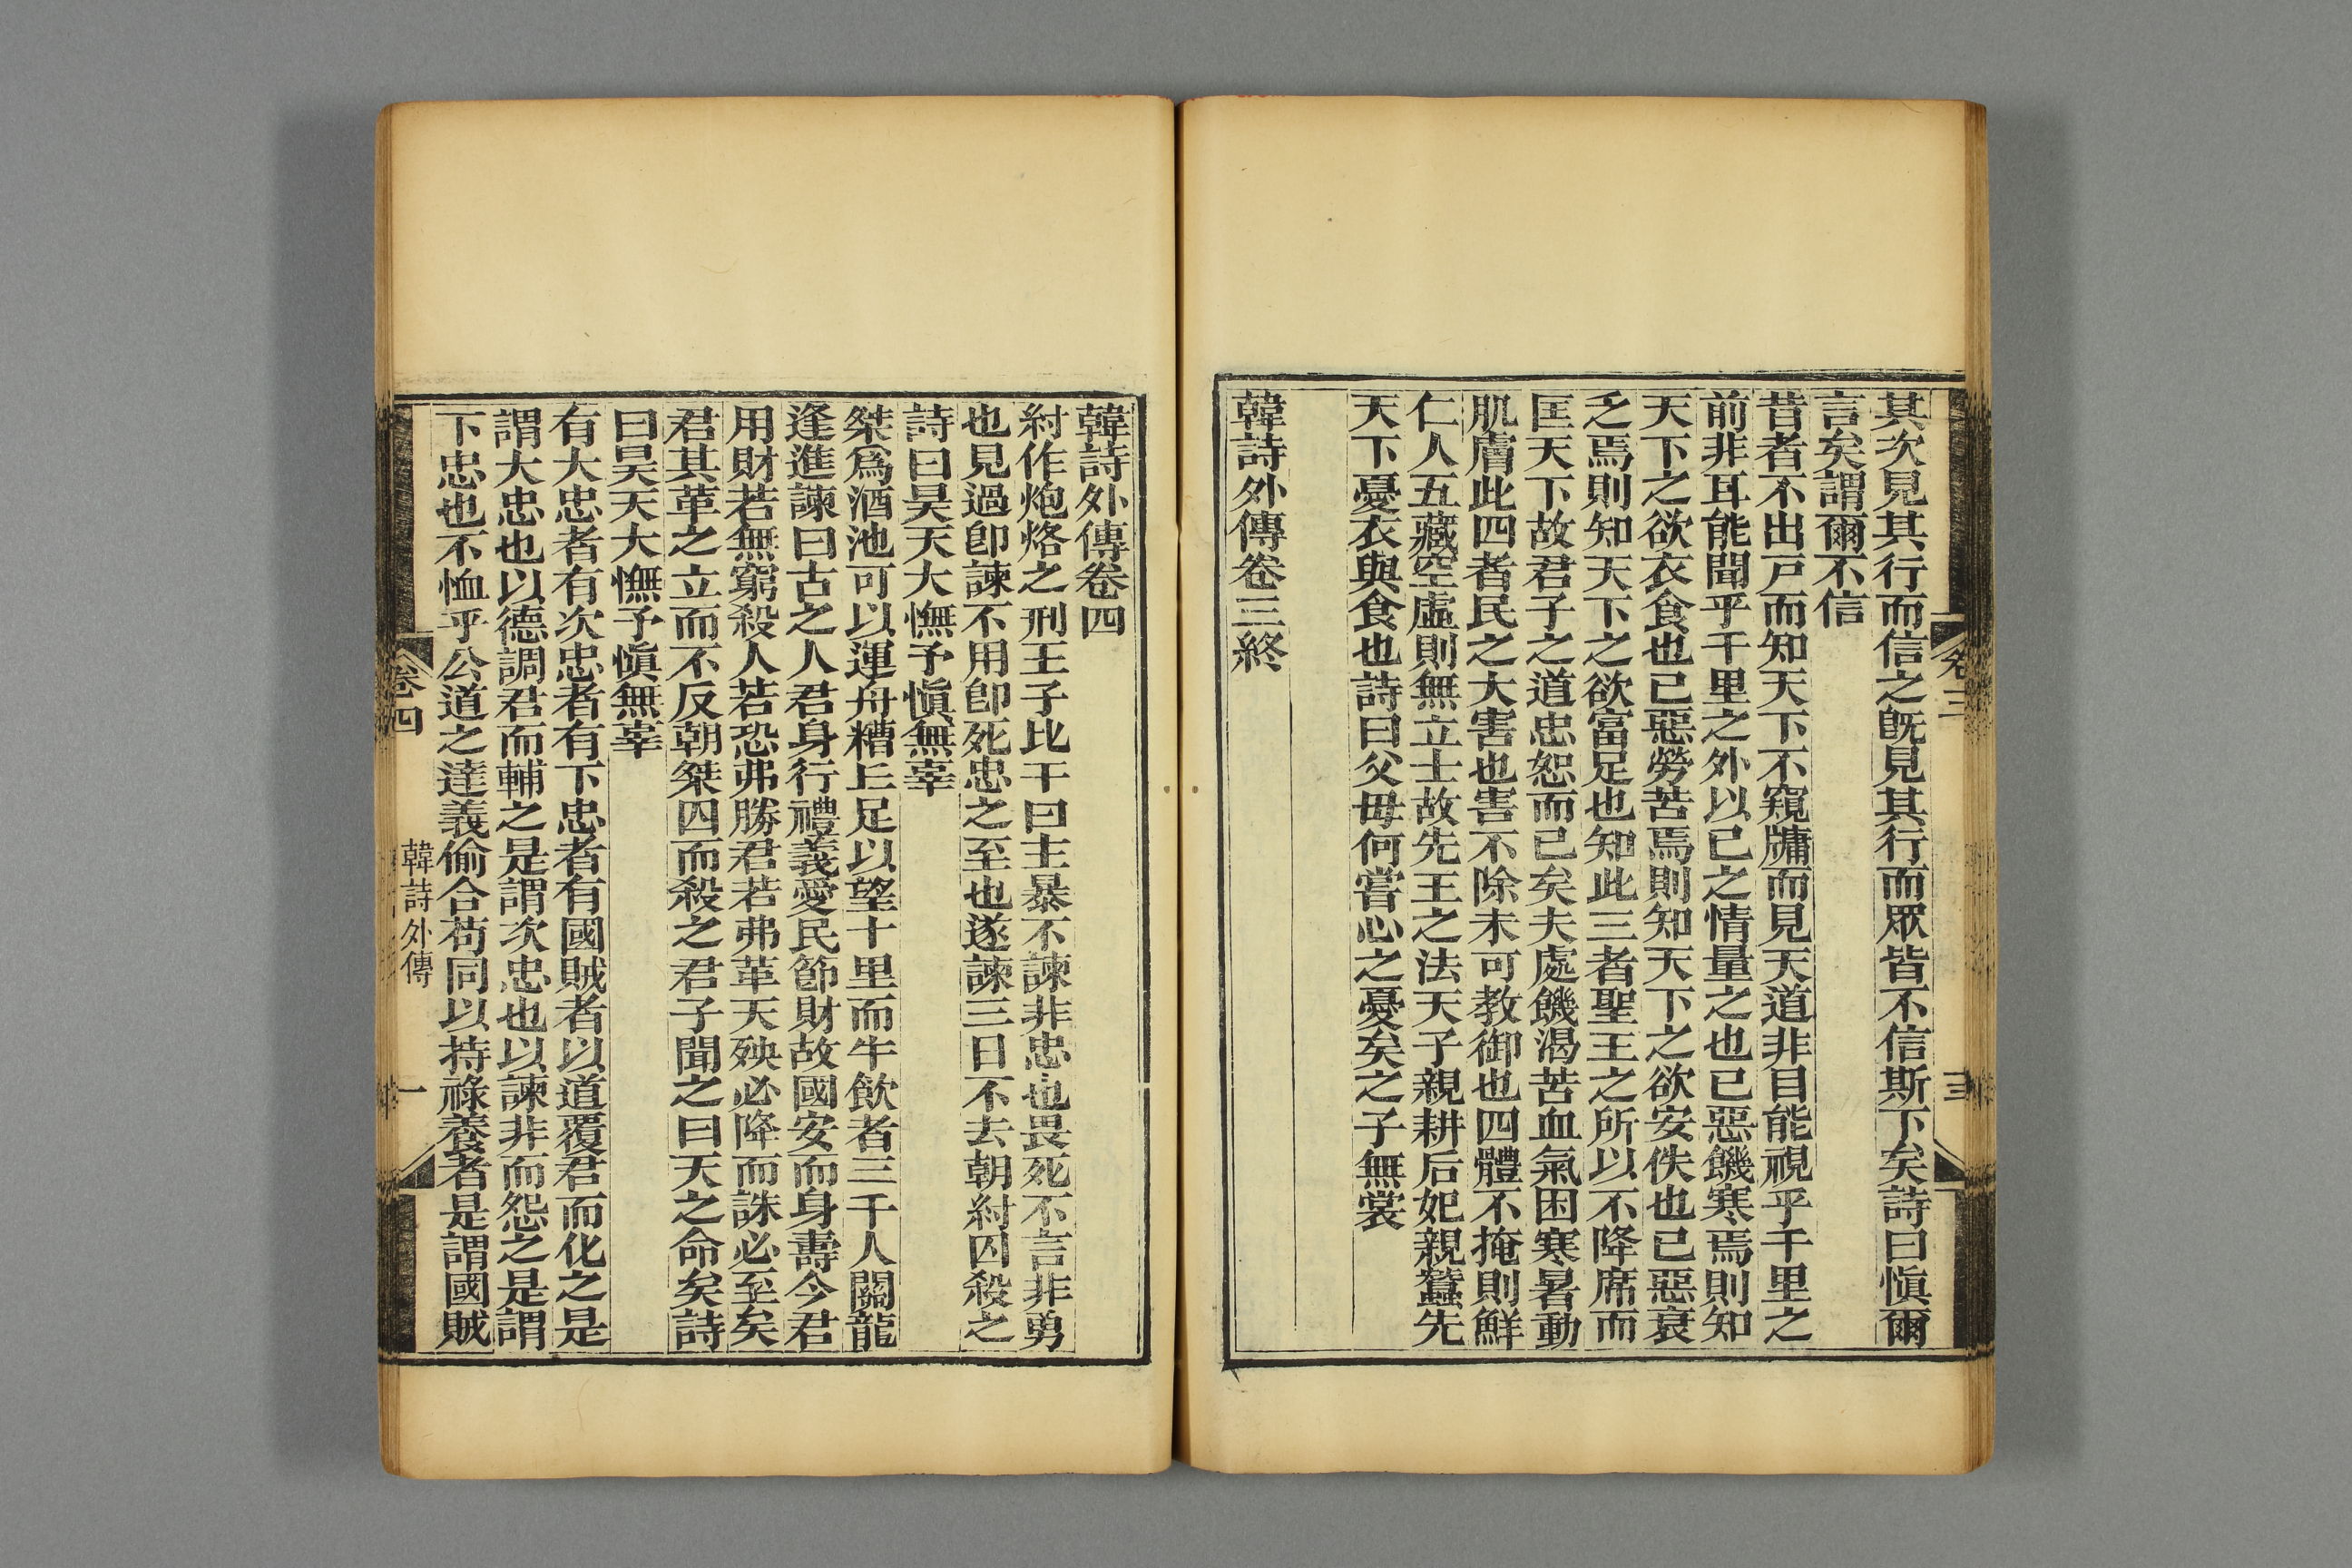 其次見其行而信之旣見其行而眾皆不信斯下矣詩曰愼爾
言矣謂爾不信
昔者不出戸而知天下不窺牖而見天道非目能視乎千里之
前非耳能聞乎千里之外以已之情量之也已惡饑寒焉則知
天下之欲衣食也已惡勞苦焉則知天下之欲安佚也已惡衰
乏焉則知天下之欲富足也知此三者聖王之所以不降席而
匡天下故君子之道忠恕而已矣夫處饑渴苦血氣困寒暑動
肌膚此四者民之大害也害不除未可教御也四體不掩則鮮
仁人五藏空虛則無立士故先王之法天子親耕后妃親蠶先
天下憂衣與食也詩曰父母何嘗心之憂矣之子無裳
韓詩外傳卷三終
卷三
韓詩外傳卷四
紂作炮烙之刑王子比干曰主暴不諫非忠也畏死不言非勇
也見過卽諫不用卽死忠之至也遂諫三日不去朝紂囚殺之
詩曰昊天大憮予愼無辜
桀爲酒池可以運舟糟丘足以望十里而牛飮者三千人關龍
逢進諫曰古之人君身行禮義愛民節財故國安而身壽今君
用財若無窮殺人若恐弗勝君若弗革天殃必降而誅必至矣
君其革之立而不反朝桀囚而殺之君子聞之曰天之命矣詩
曰昊天大憮予愼無辜
有大忠者有次忠者有下忠者有國賊者以道覆君而化之是
謂大忠也以德調君而輔之是謂次忠也以諫非而怨之是謂
下忠也不恤乎公道之達義偷合苟同以持祿養者是謂國賊
卷四
韓詩外傳
一